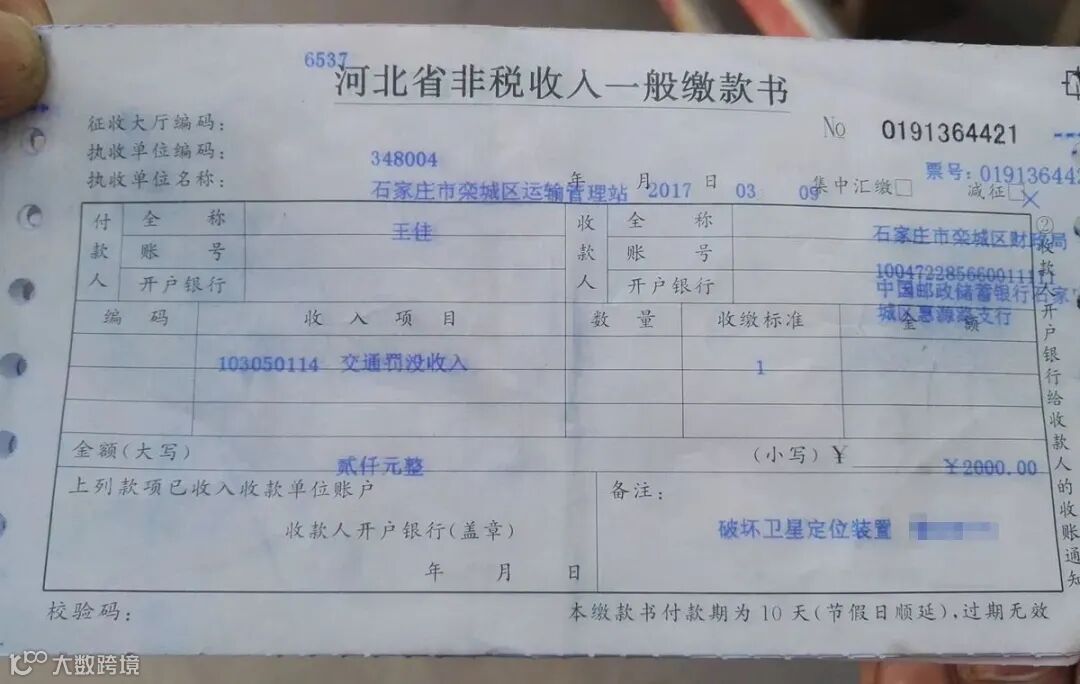 6537
河北省非税收入一般缴款书
征收大厅编码:
No 0191364421
执收单位编码: 348004
票号: 01913644
执收单位名称: 石家庄市栾城区运输管理站 2017 年 03 月 09 日 集中汇缴□ 减征□
付款人 全称 王佳 收款人 全称 石家庄市栾城区财政局
账号 账号 100472285660011111
开户银行 开户银行 中国邮政储蓄银行石家
城区惠源路支行
编码 收入项目 数量 收缴标准 金额
103050114 交通罚没收入 1
金额(大写) 贰仟元整 (小写)¥ ¥2000.00
上列款项已收入收款单位账户 备注:
收款人开户银行(盖章) 破坏卫星定位装置
年 月 日
校验码: 本缴款书付款期为10天(节假日顺延),过期无效
②收款人开户银行给收款人的收账通知
大数跨境